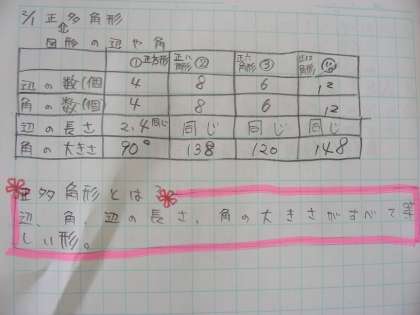 2/1 正多角形
図形の辺や角
①正方形 正八角形② 正六角形③
辺の数(個 4 8 6 12
角の数(個 4 8 6 12
辺の長さ 2.4同じ 同じ 同じ 同じ
角の大きさ 90° 138 120 148
正多角形とは
辺、角、辺の長さ、角の大きさがすべて等
しい形。